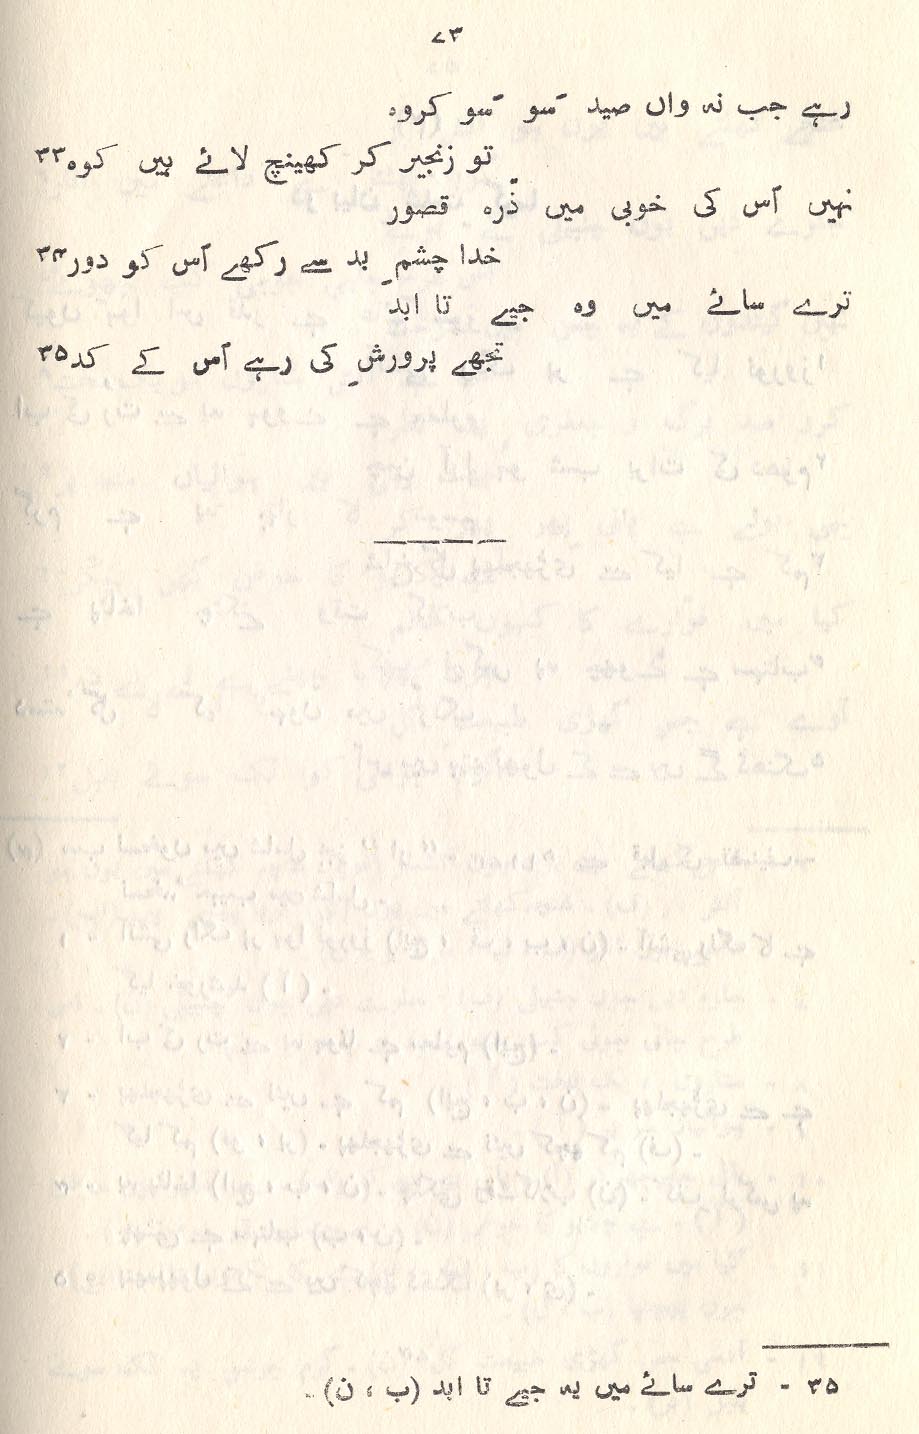 ۷۳
رہے جب نہ واں صید سَو سَو کروہ
تو زنجیر کر کھینچ لائے ہیں کوہ۳۳
نہیں اُس کی خوبی میں ذرّہ قصور
خدا چشمِ بد سے رکھے اُس کو دور۳۴
ترے سائے میں وہ جیے تا ابد
تجھے پرورشِ کی رہے اُس کے کد۳۵
۳۵ - ترے سائے میں یہ جیے تا ابد (ب ، ن)۔